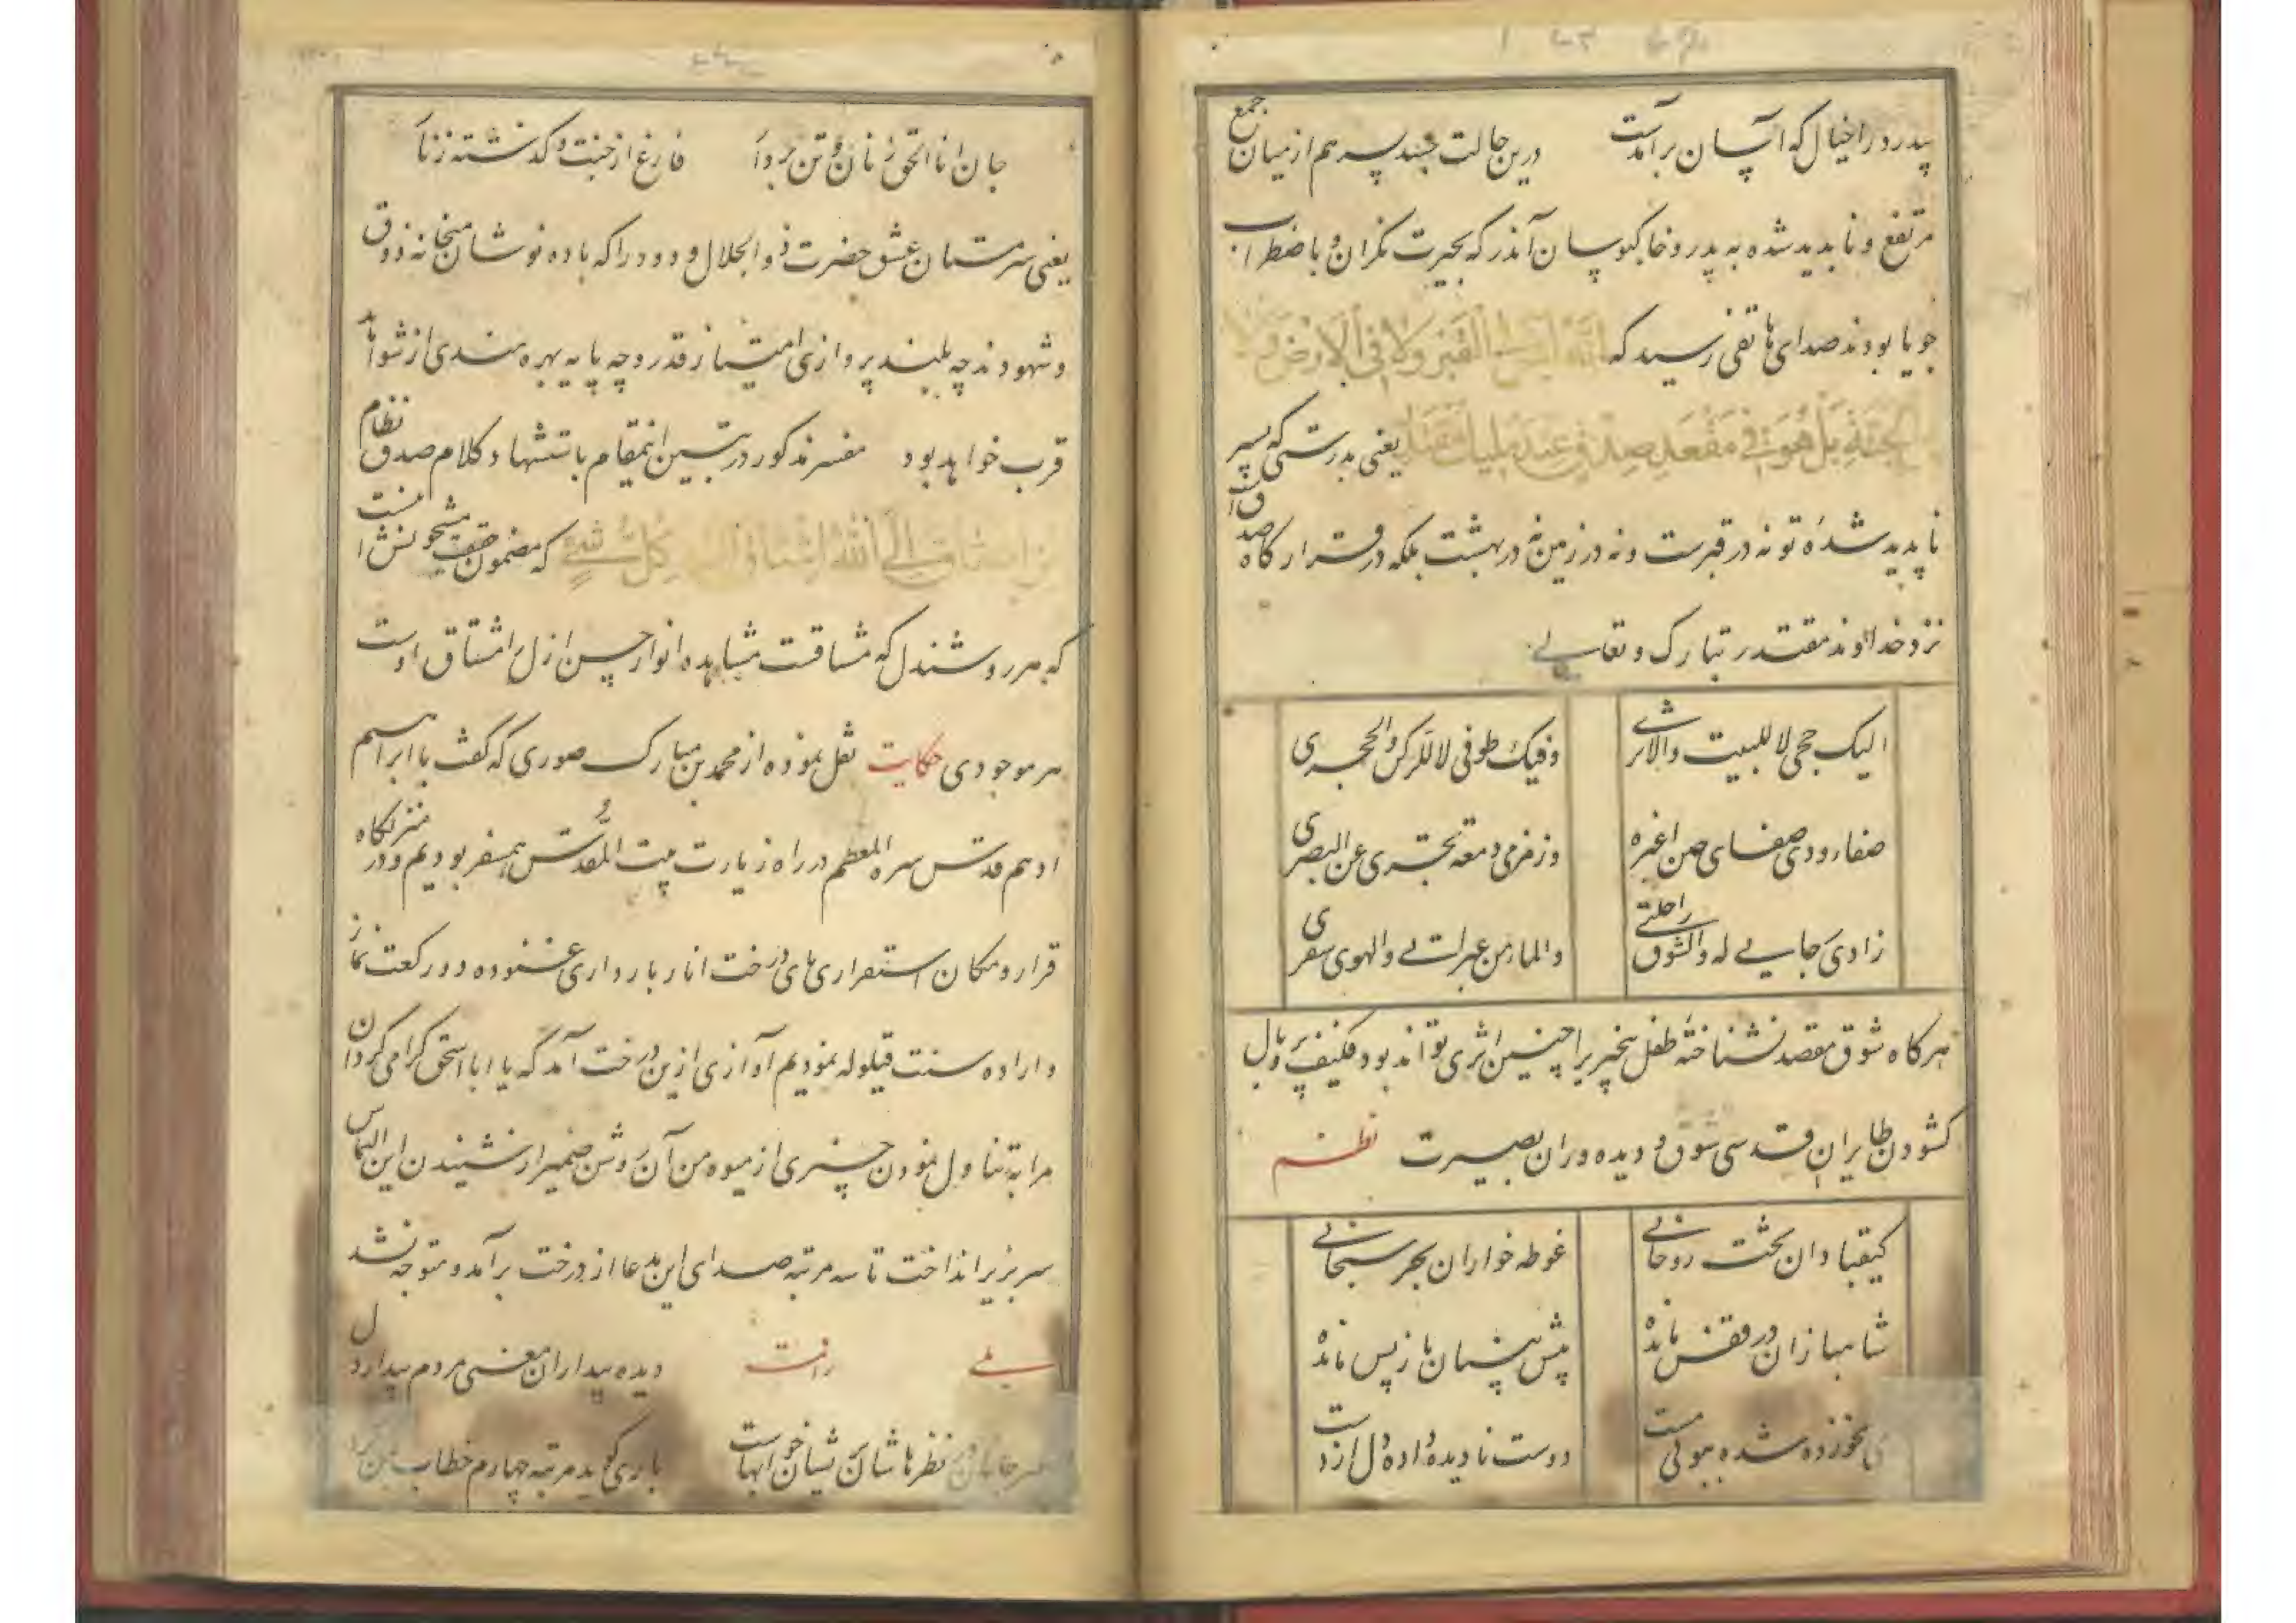 پدر را خیال که آسان برآمدست درین حالت جسد پسر هم از میان جمع
مرتفع و ناپدید شده پدر و خاکبوسان آنذر که بحیرت نگران و باضطراب
جویا بودند صدای هاتفی رسید که انه لیس فی القبر ولا فی الارض ولا فی
الجنة بل هو فی مقعد صدق عند ملیک مقتدر یعنی بدرستی که پسر
ناپدید شدهٔ تو نه در قبرست و نه در زمین نه در بهشت بلکه در قرارگاه صدق
نزد خداوند مقتدر تبارک و تعالی
الیک حجی لا للبیت والاثری
وفیک طوفی لا للرکن والحجری
صفاء ودی صفای حین اعبره
وزمزمی دمعة تجری عن البصری
زادی رجایی له والشوق راحلتی
والماء من عبراتی والهوی سفری
هرگاه شوق مقصد نشناختهٔ طفل بیخبر را چنین اثری تواند بود فکیف پر و بال
کشودن طایران قدسی شوق و دیده وران بصیرت نظم
کیقبادان تخت روحانی
غوطه خواران بحر سبحانی
شاهبازان در قفس مانده
پیش بینان باز پس مانده
می نخورده شده ببوئی مست
دوست نادیده داده دل از دست
جان انا الحق زنان و تن بردار فارغ از جنت و گذشته ز نار
یعنی سرمستان عشق حضرت ذو الجلال ودود را که باده نوشان میخانه ذوق
و شهودند چه بلند پروازی امتیاز قدر و چه پایه بهره مندی از شواهد
قرب خواهد بود مفسر مذکور در تبیین اینمقام باستشهاد کلام صدق نظام
من اشتاق الی الله اشتاق الیه کل شئ که مضمون حقیقت مشحونش اینست
که هر روشندل که مشتاقست مشاهده انوار حسن ازل را مشتاق اوست
هر موجودی حکایت نقل نموده از محمد بن مبارک صوری که گفت با ابراهیم
ادهم قدس سره المعظم در راه زیارت بیت المقدس همسفر بودیم و در منزلگاه
قرار و مکان استقراری پای درخت انار بارداری غنوده دو رکعت نماز
و اراده سنت قیلوله نمودیم آوازی ازین درخت آمد که یا ابا اسحق گرامی گردان
مرا بتناول نمودن چیزی از میوه من آن روشن ضمیر از شنیدن این التماس
سر بزیر انداخت تا سه مرتبه صدای این مدعا از درخت برآمد و متوجه نشد
بلی دیده بیداران معنی مردم بیدار دل
نظرها شان نشان خوابهاست باری گوید مرتبه چهارم خطاب